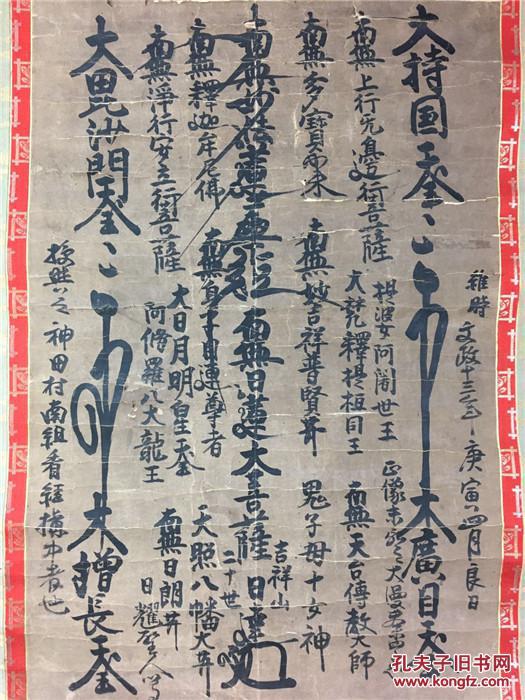 維時 文政十三年 庚寅 四月良日
大持国天王
大廣目天王
南無上行无邊行菩薩
提婆 阿闍世王
正像未 大漫荼
南無多寶如来
大梵釋提桓因王
南無天台傳教大師
南無妙吉祥普賢菩薩
鬼子母十女神
南無妙法蓮華経 南無日蓮大菩薩
吉祥山
二十世
日
南無釋迦牟尼佛
南無身子目連尊者
天照八幡大菩薩
南無淨行安立行菩薩
大日月明星天
阿修羅八大龍王
南無日朗菩薩
日耀
大毘沙門天王
大増長天王
授與之 神田村南組看経講中者也
孔夫子旧书网